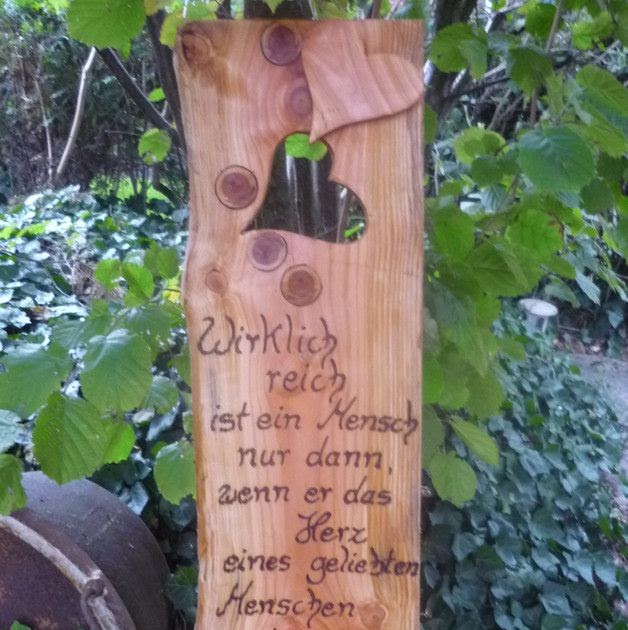 Wirklich
reich
ist ein Mensch
nur dann,
wenn er das
Herz
eines geliebten
Menschen